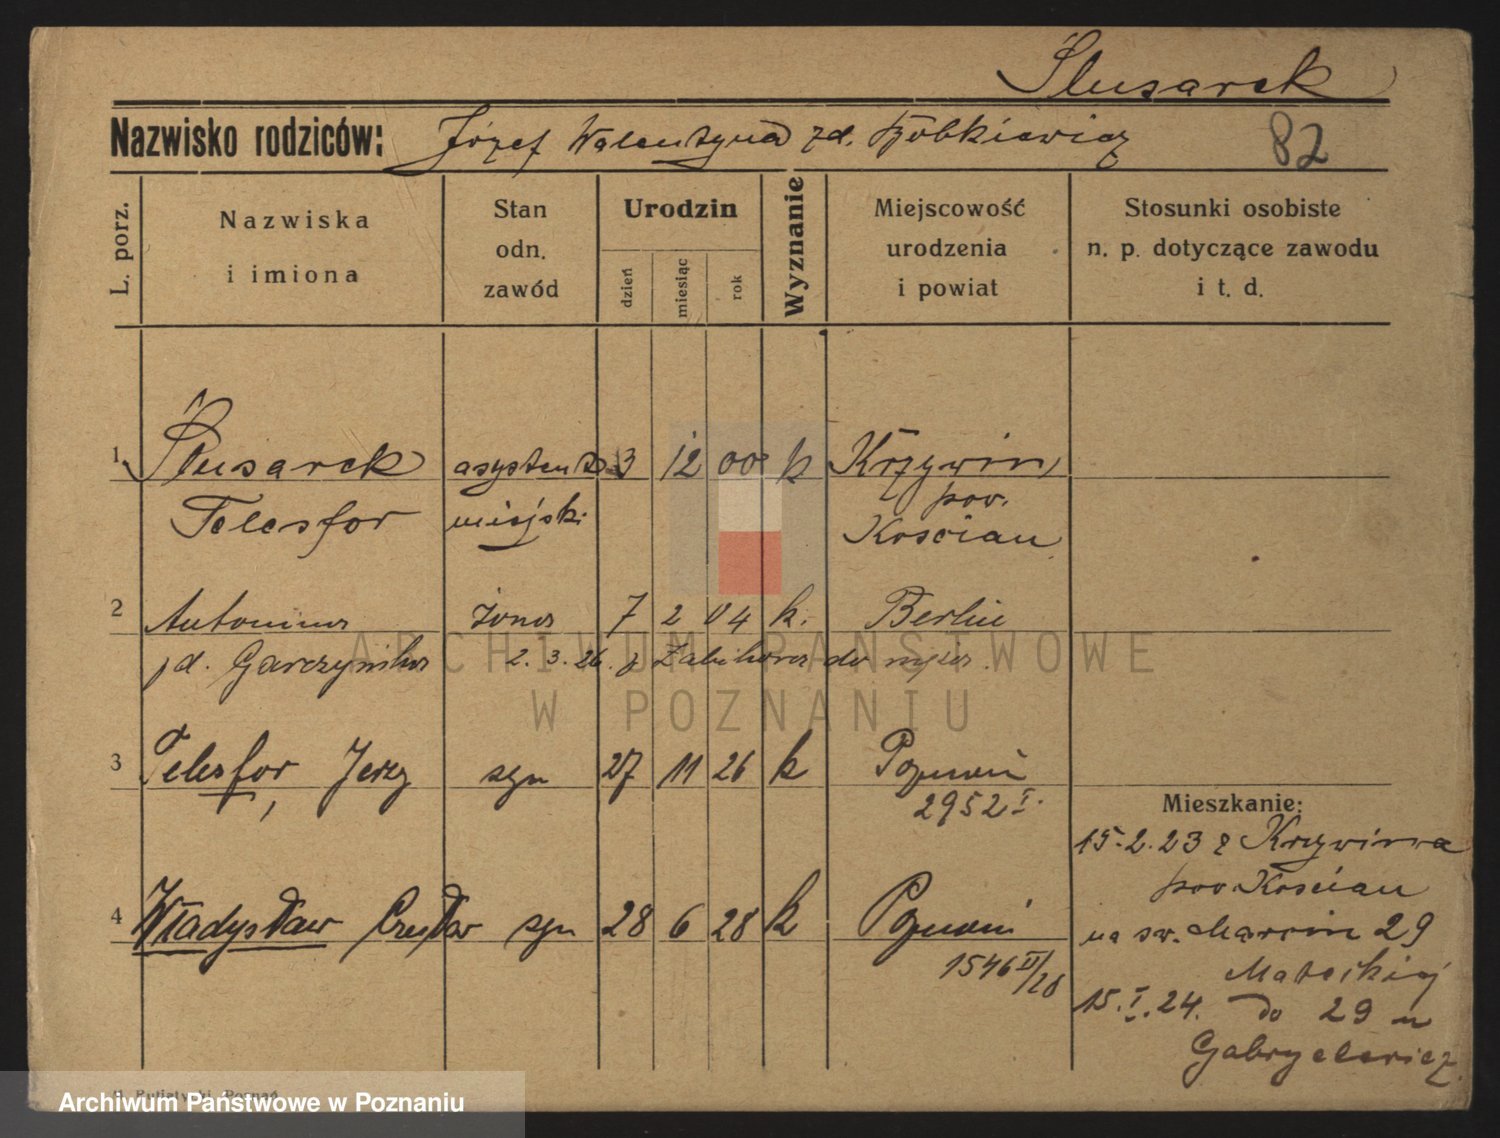 Ślusarek
Nazwisko rodziców: Józef Walentyna zd. Bobkiewicz 82
L. porz.
Nazwiska
i imiona
Stan
odn.
zawód
Urodzin
dzień
miesiąc
rok
Wyznanie
Miejscowość
urodzenia
i powiat
Stosunki osobiste
n. p. dotyczące zawodu
i t. d.
1 Ślusarek asystent 3 12 00 k Krzywiń,
pow.
Telesfor miejski Kościan
2 Antonina żona 7 2 04 k. Berlin
zd. Garczyńska 2. 3. 26. z Żabikowa do męża.
3 Telesfor, Jerzy syn 27 11 26 k Poznań
2952 I.
4 Władysław Czesław syn 28 6 28 k Poznań
1546 II/28
Mieszkanie:
15.2.23 z Krzywinia
pow. Kościan
na św. Marcin 29
Matejki
15.I.24. do 29 u
Gabryelewicz
ARCHIWUM PAŃSTWOWE
W POZNANIU
Archiwum Państwowe w Poznaniu